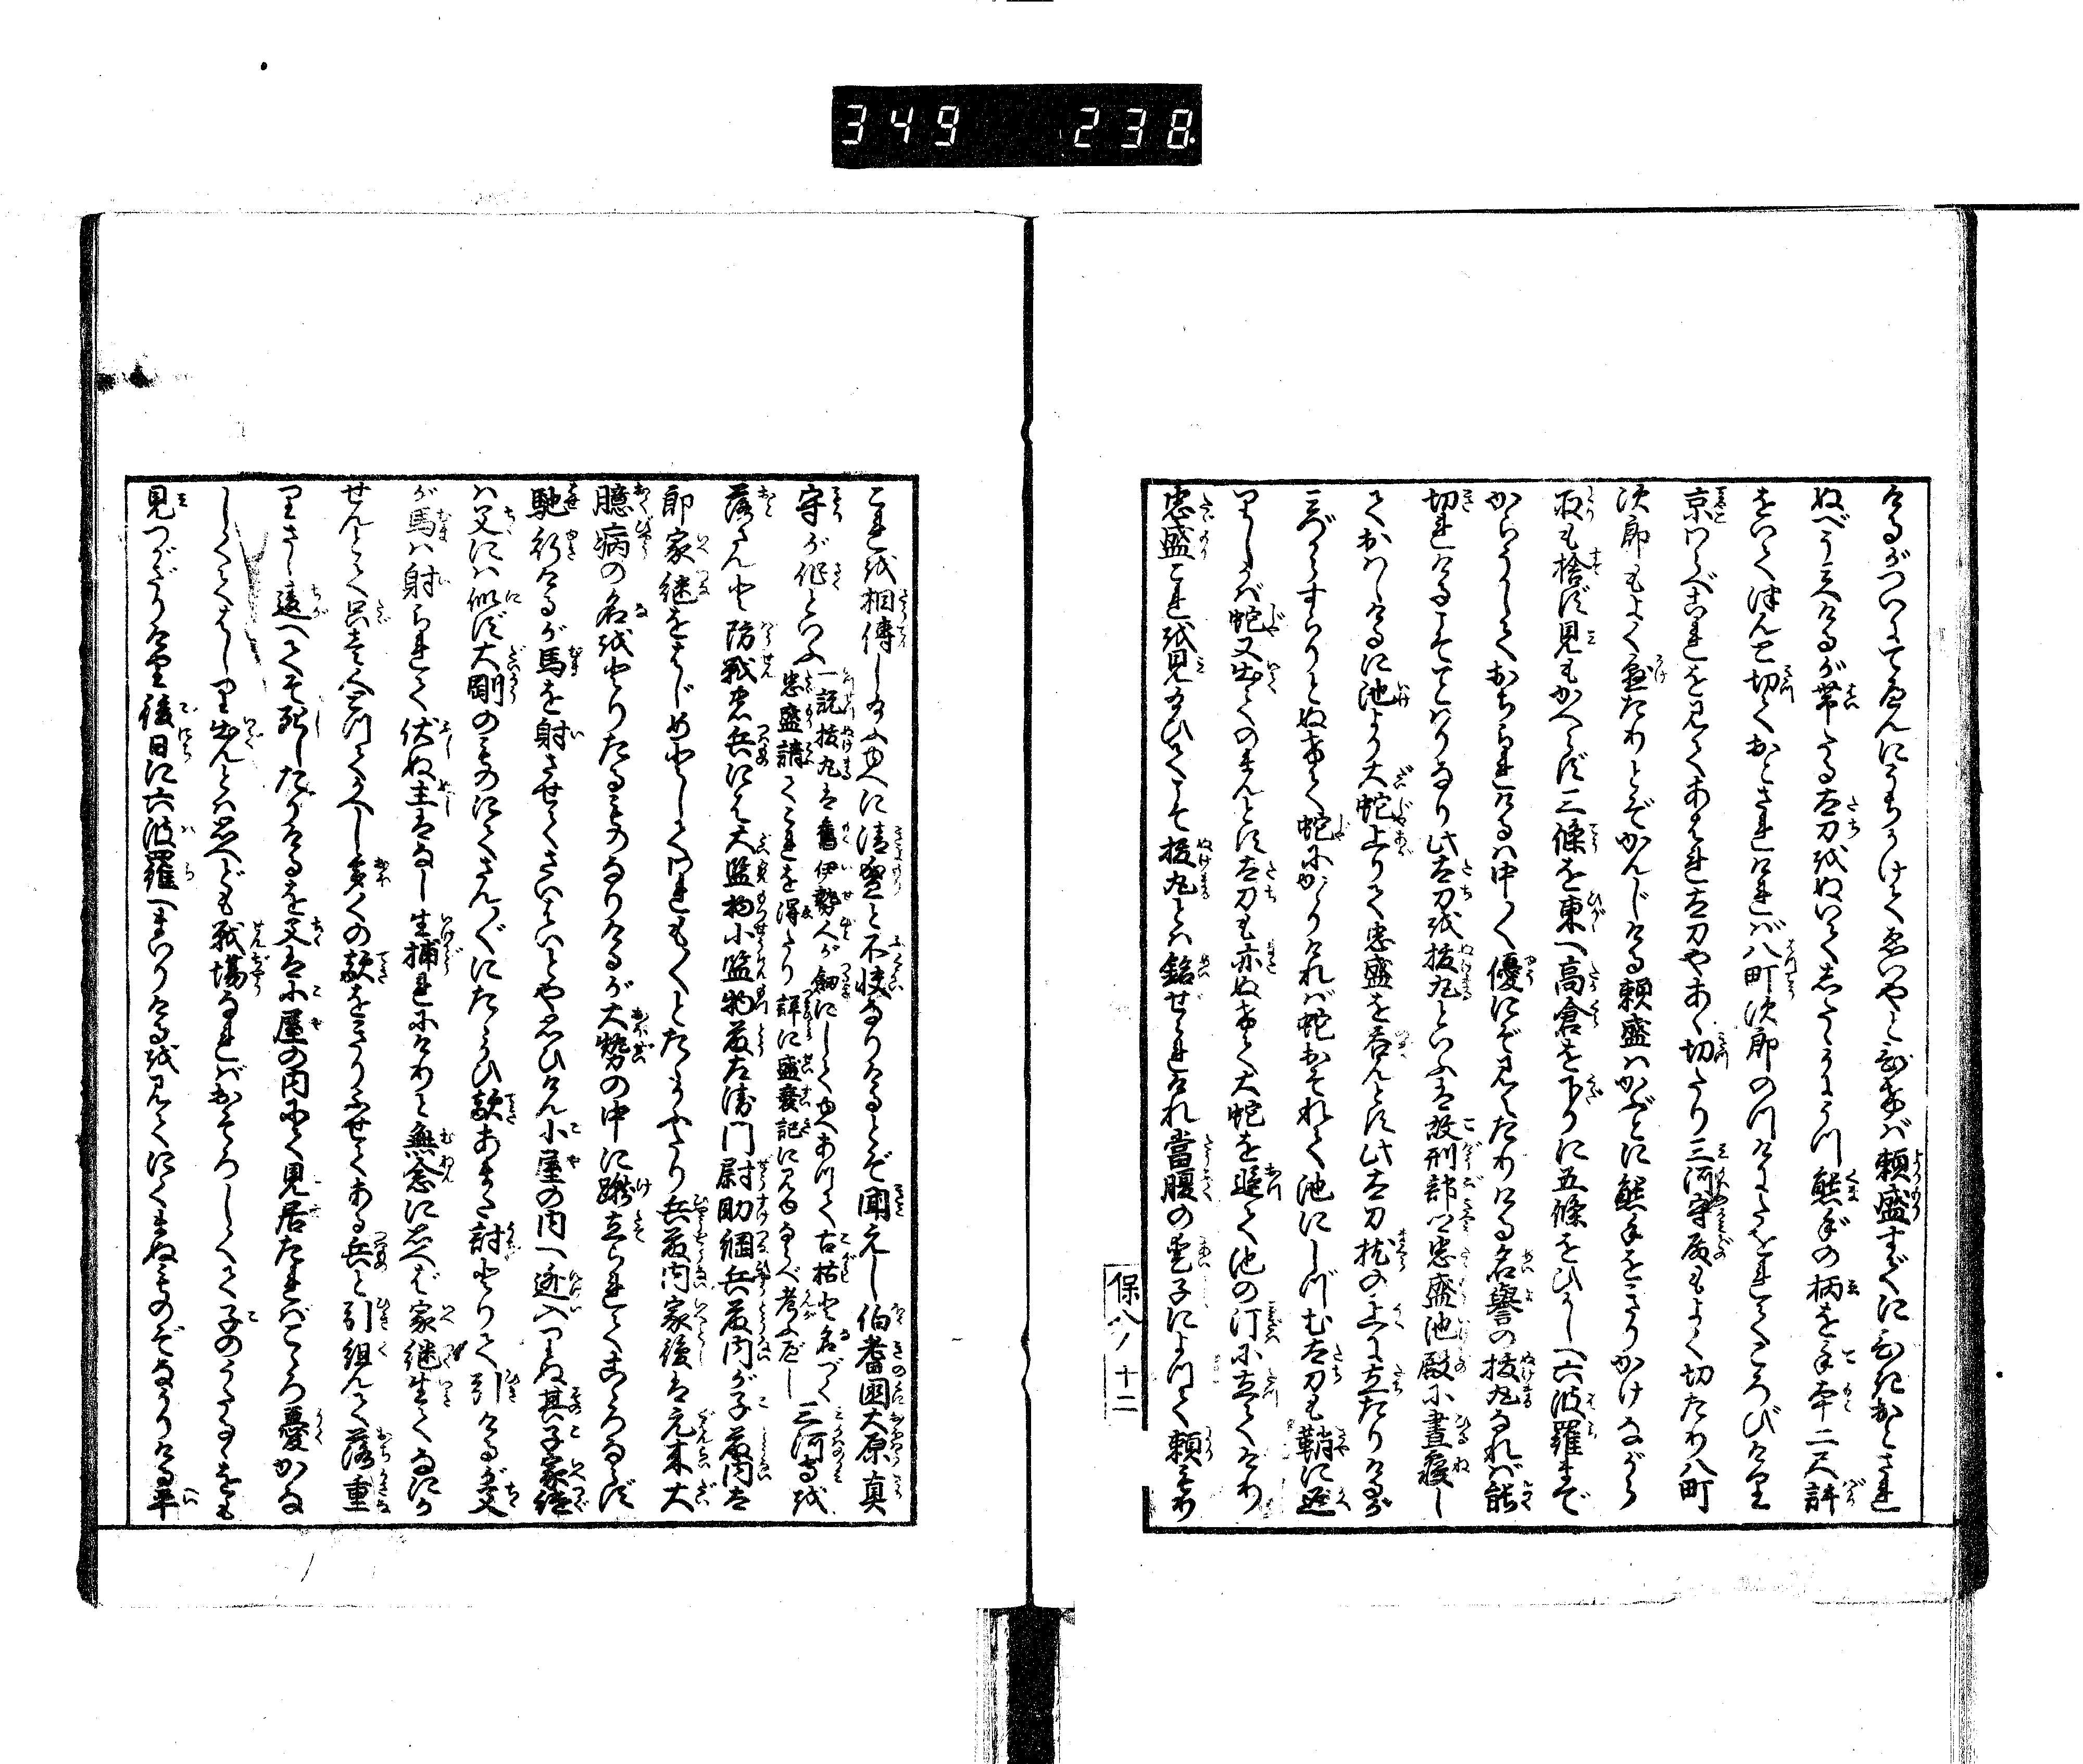 349 238
けるがついにてへんにうちかけてゑいやと引ければ頼盛すでに引おとされ
ぬべう見へけるが帯たる太刀をぬいてしたゝかにうつ熊手の柄を手本二尺許
をいてつんと切ておとされければ八町次郎のつけにたをれてころびけり
京わらべこれを見てあはれ太刀やあゝ切たり三河守殿もよく切たり八町
次郎もよく懸たりとぞかんじける頼盛はかぶとに熊手をきりかけながら
取も捨ず見もかへらず三條を東へ高倉を下りに五條をひがしへ六波羅まで
からうしておちられけるは中々優にぞ見へたりける名譽の抜丸なれば能
切れけるもことわりなり此太刀を抜丸といふは故刑部卿忠盛池殿に晝寢し
ておはしけるに池より大蛇上りて忠盛を呑んとす此太刀枕の上に立たりけるが
みづからすらりとぬけて蛇にかゝりければ蛇おそれて池にしづむ太刀も鞘に返
りしかば蛇又出てのまんとす太刀も亦ぬけて大蛇を追て池の汀に立てけり
忠盛これを見給ひてこそ抜丸とは銘ぜられけれ當腹の愛子によつて頼もり
保八ノ十二
これを相傳し給ふゆへに清盛と不快なりけるとぞ聞えし伯耆国大原真
守が作といふ
一説抜丸は舊伊勢人が劔にしてゆへあつて古枯と名づく
忠盛請てこれを得たり詳に盛衰記に見ゆならべ考ふべし
三河守を
落さんと防戦ふ兵には大監物小監物藤左衛門尉助綱兵藤内が子藤内太
郎家継をはじめとしてわれも／＼とたゝかふたり兵藤内家俊は元来大
臆病の名をとりたるものなりけるが大勢の中に蹴立られてこゝろならず
馳行けるが馬を射させてさいはいとや思ひけん小屋の内へ逃入りぬ其子家継
は父には似ず大剛のものにてさん／＼にたゝかひ敵あまた討とりて引けるが父
が馬は射られて伏ぬ主はなし生捕れにけりと無念に思へば家継生てなにか
せんとて只一人かへし多くの敵をきりふせてある兵と引組んで落重
りさし違へてぞ死したりけるを父は小屋の内にて見居たればこゝろ憂かな
しくてはしり出んとは思へども戦場なればおそろしくて子のうたるゝをも
見つがざりけり後日に六波羅へまいりけるを見てにくまぬものぞなかりける平